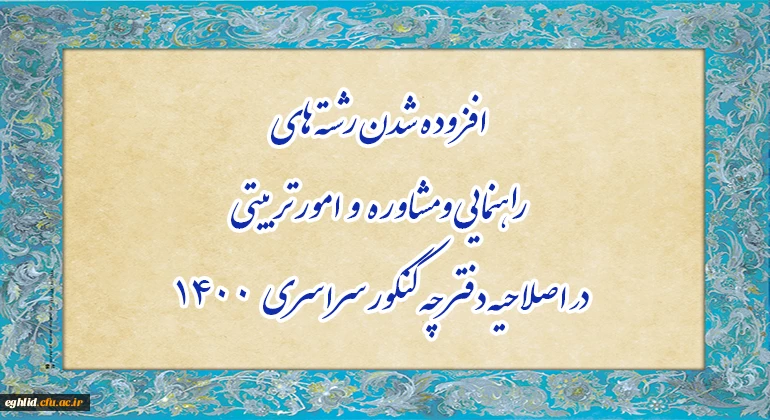 افزوده شدن رشته های
راهنمایی و مشاوره و امور تربیتی
در اصلاحیه دفترچه کنکور سراسری ۱۴۰۰
eghlid.cfu.ac.ir